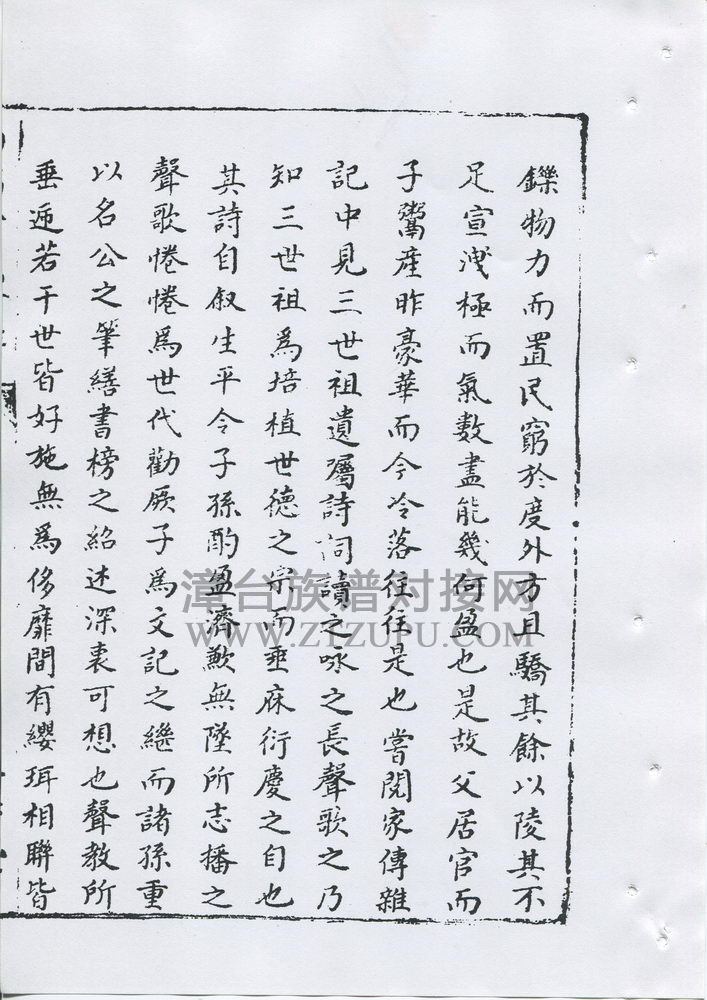 鑠物力而置民窮於度外方且驕其餘以陵其不
足宣洩極而氣數盡能幾何盈也是故父居官而
子鬻產昨豪華而今冷落往往是也嘗閱家傳雜
記中見三世祖遺囑詩詞讀之咏之長聲歌之乃
知三世祖為培植世德之宗而垂庥衍慶之自也
其詩自叙生平令子孫酌盈濟歉無墜所志播之
聲歌惓惓爲世代勸厥子爲文記之繼而諸孫重
以名公之筆繕書榜之紹述深衷可想也聲教所
垂遞若干世皆好施無爲侈靡間有纓珥相聯皆
漳台族谱对接网
WWW.ZTZUPU.COM